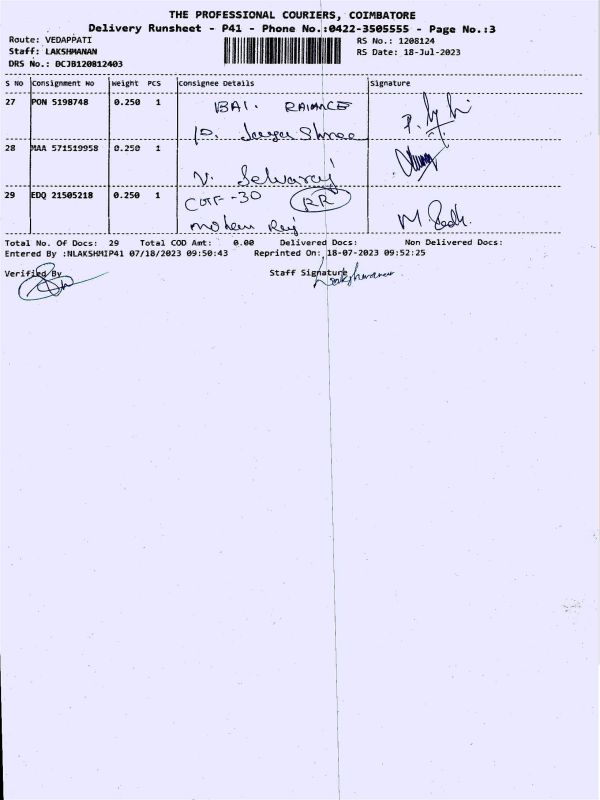 THE PROFESSIONAL COURIERS, COIMBATORE
Delivery Runsheet - P41 - Phone No.:0422-3505555 - Page No.:3
Route: VEDAPPATI RS No.: 1208124
Staff: LAKSHMANAN RS Date: 18-Jul-2023
DRS No.: DCJB120812403
S No Consignment No Weight PCS Consignee Details Signature
27 PON 5198748 0.250 1 BAI.
P. Jaya Shree
28 MAA 571519958 0.250 1
V. Selvaraj
29 EDQ 21505218 0.250 1 -30 RR
Mohan Raj
Total No. Of Docs: 29 Total COD Amt: 0.00 Delivered Docs: Non Delivered Docs:
Entered By :NLAKSHMIP41 07/18/2023 09:50:43 Reprinted On: 18-07-2023 09:52:25
Verified By Staff Signature
Lakshmanan